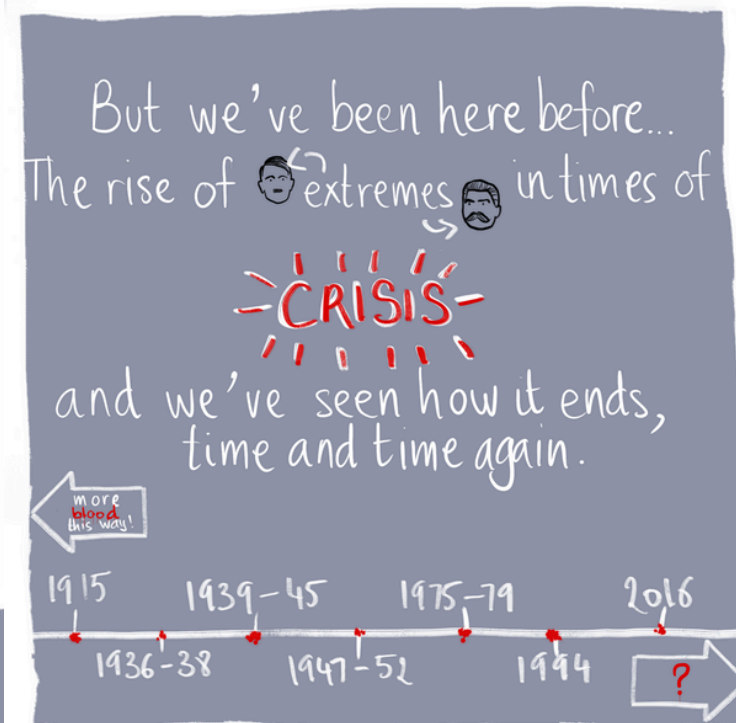 But we've been here before...
The rise of extremes in times of
CRISIS
and we've seen how it ends,
time and time again.
more
blood
this way!
1915 1939-45 1975-79 2016
1936-38 1947-52 1994 ?